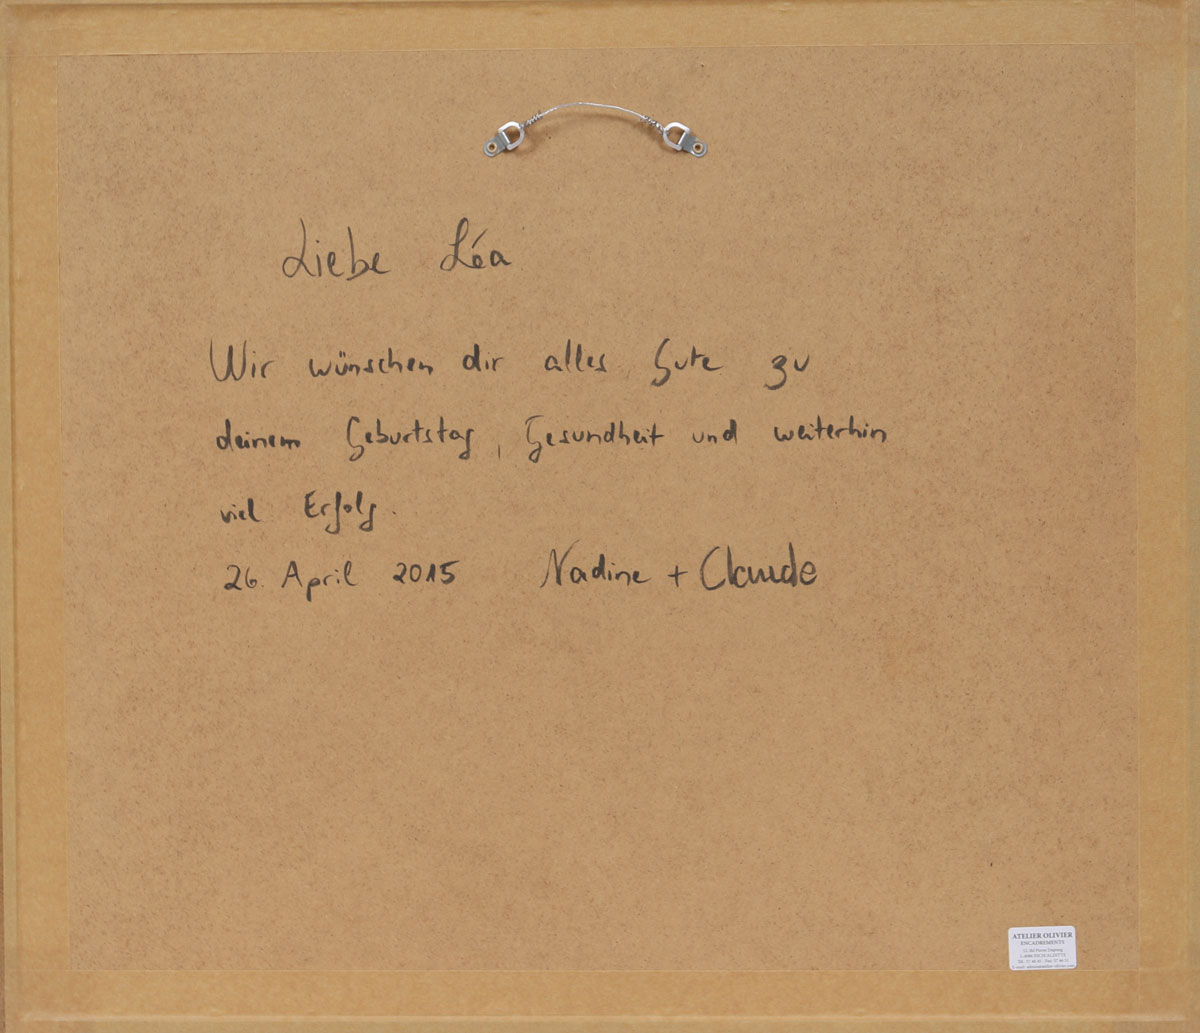 Liebe Léa
Wir wünschen dir alles Gute zu
deinem Geburtstag, Gesundheit und weiterhin
viel Erfolg.
26. April 2015 Nadine + Claude
ATELIER OLIVIER
ENCADREMENTS